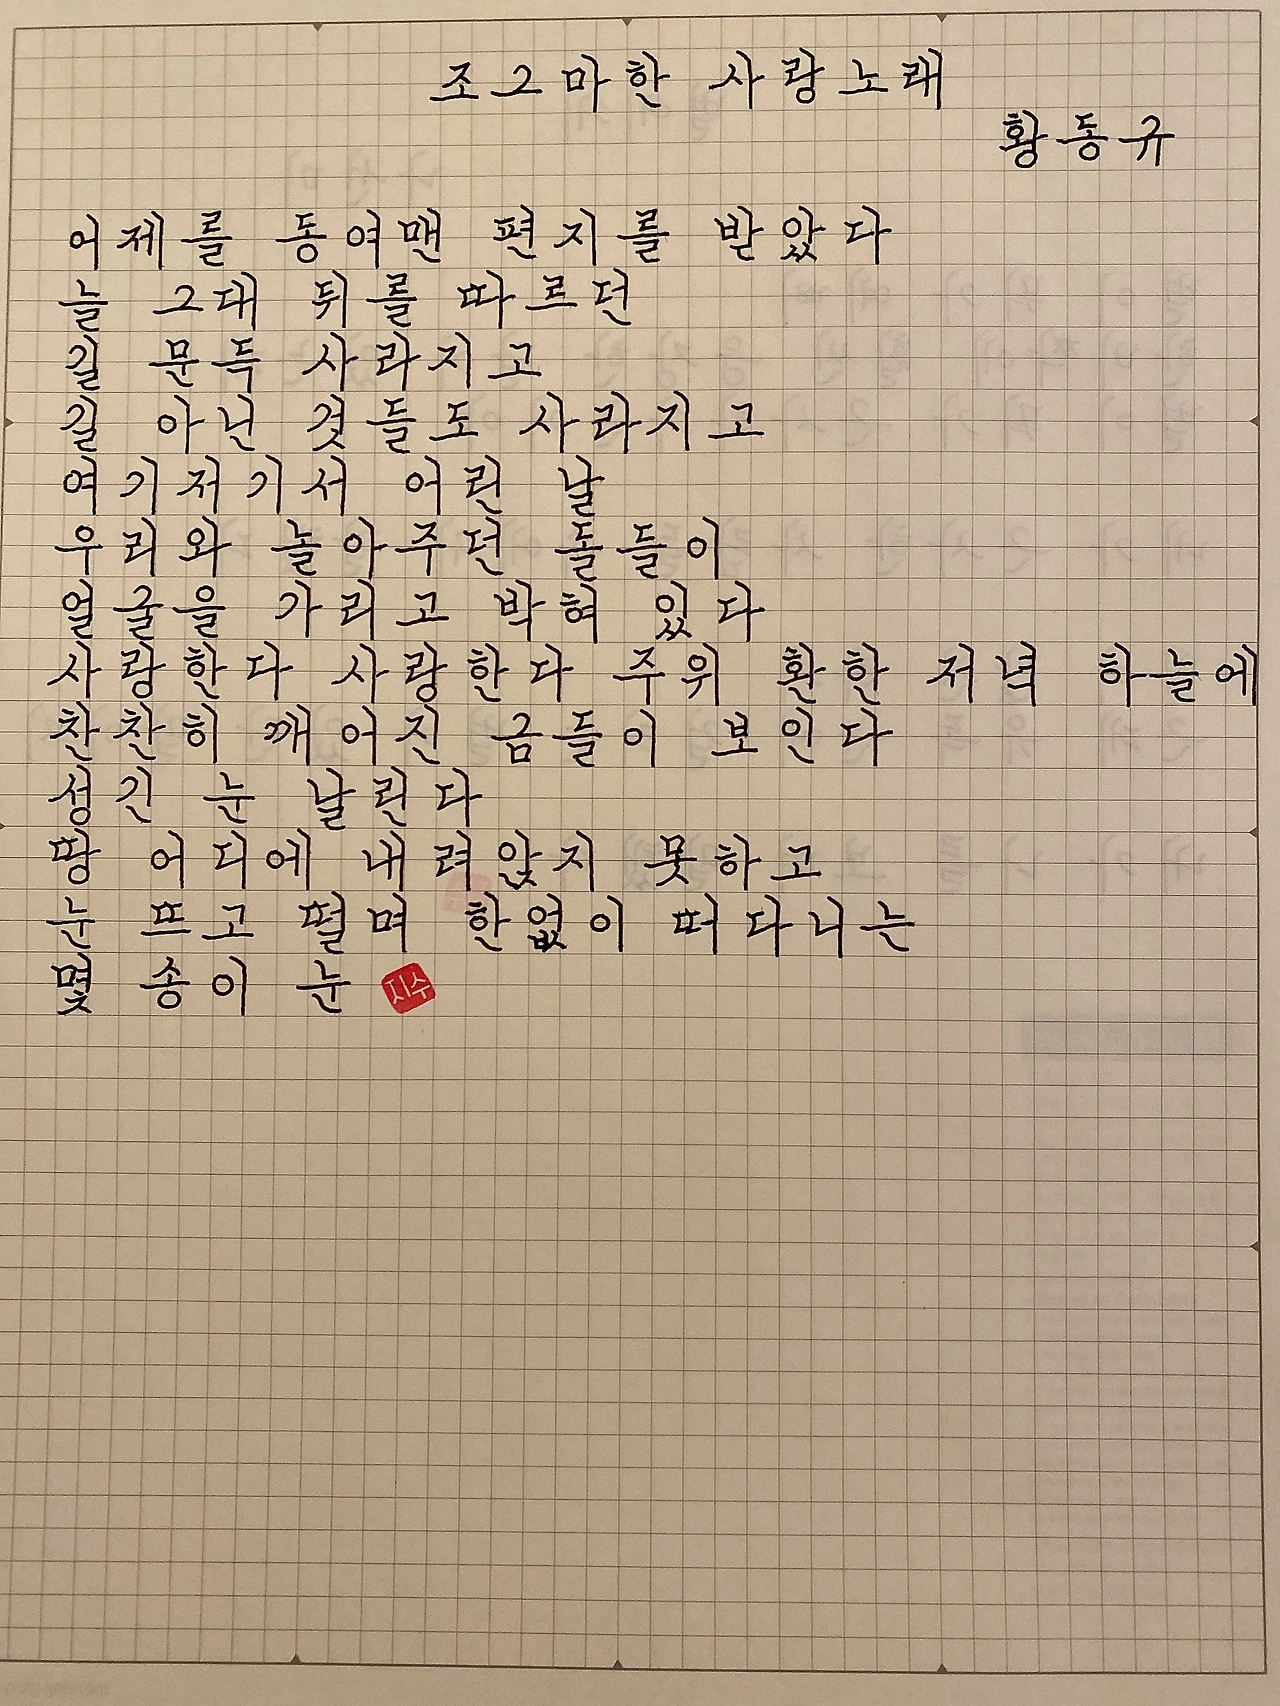 조그마한 사랑노래
황동규
어제를 동여맨 편지를 받았다
늘 그대 뒤를 따르던
길 문득 사라지고
길 아닌 것들도 사라지고
여기저기서 어린 날
우리와 놀아주던 돌들이
얼굴을 가리고 박혀 있다
사랑한다 사랑한다 주위 환한 저녁 하늘에
찬찬히 깨어진 금들이 보인다
성긴 눈 날린다
땅 어디에 내려앉지 못하고
눈 뜨고 떨며 한없이 떠다니는
몇 송이 눈 지수